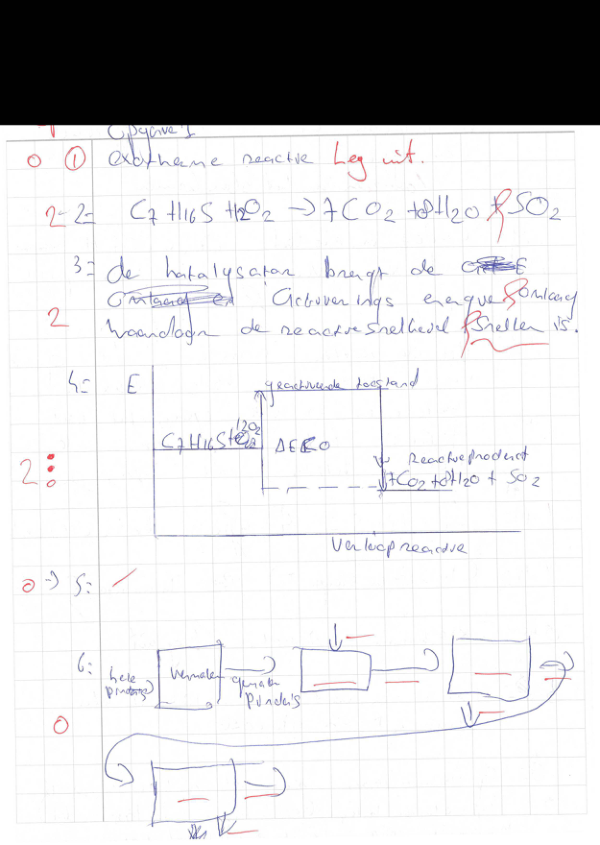 Opgave 1
0 ① exotherme reactie Leg uit.
2- 2= C7 H16 S + 12 O2 → 7 CO2 + 8 H2O + SO2
3= de katalysator brengt de E
Activerings energie omlaag
2 waardoor de reactiesnelheid sneller is.
4= E geactiveerde toestand
C7 H16 S + 12O2 ΔE<0
Reactieproduct
2 7CO2 + 8H2O + SO2
Verloop reactie
0 → 5:
6: hele pinda's vermalen gemalen pinda's
0